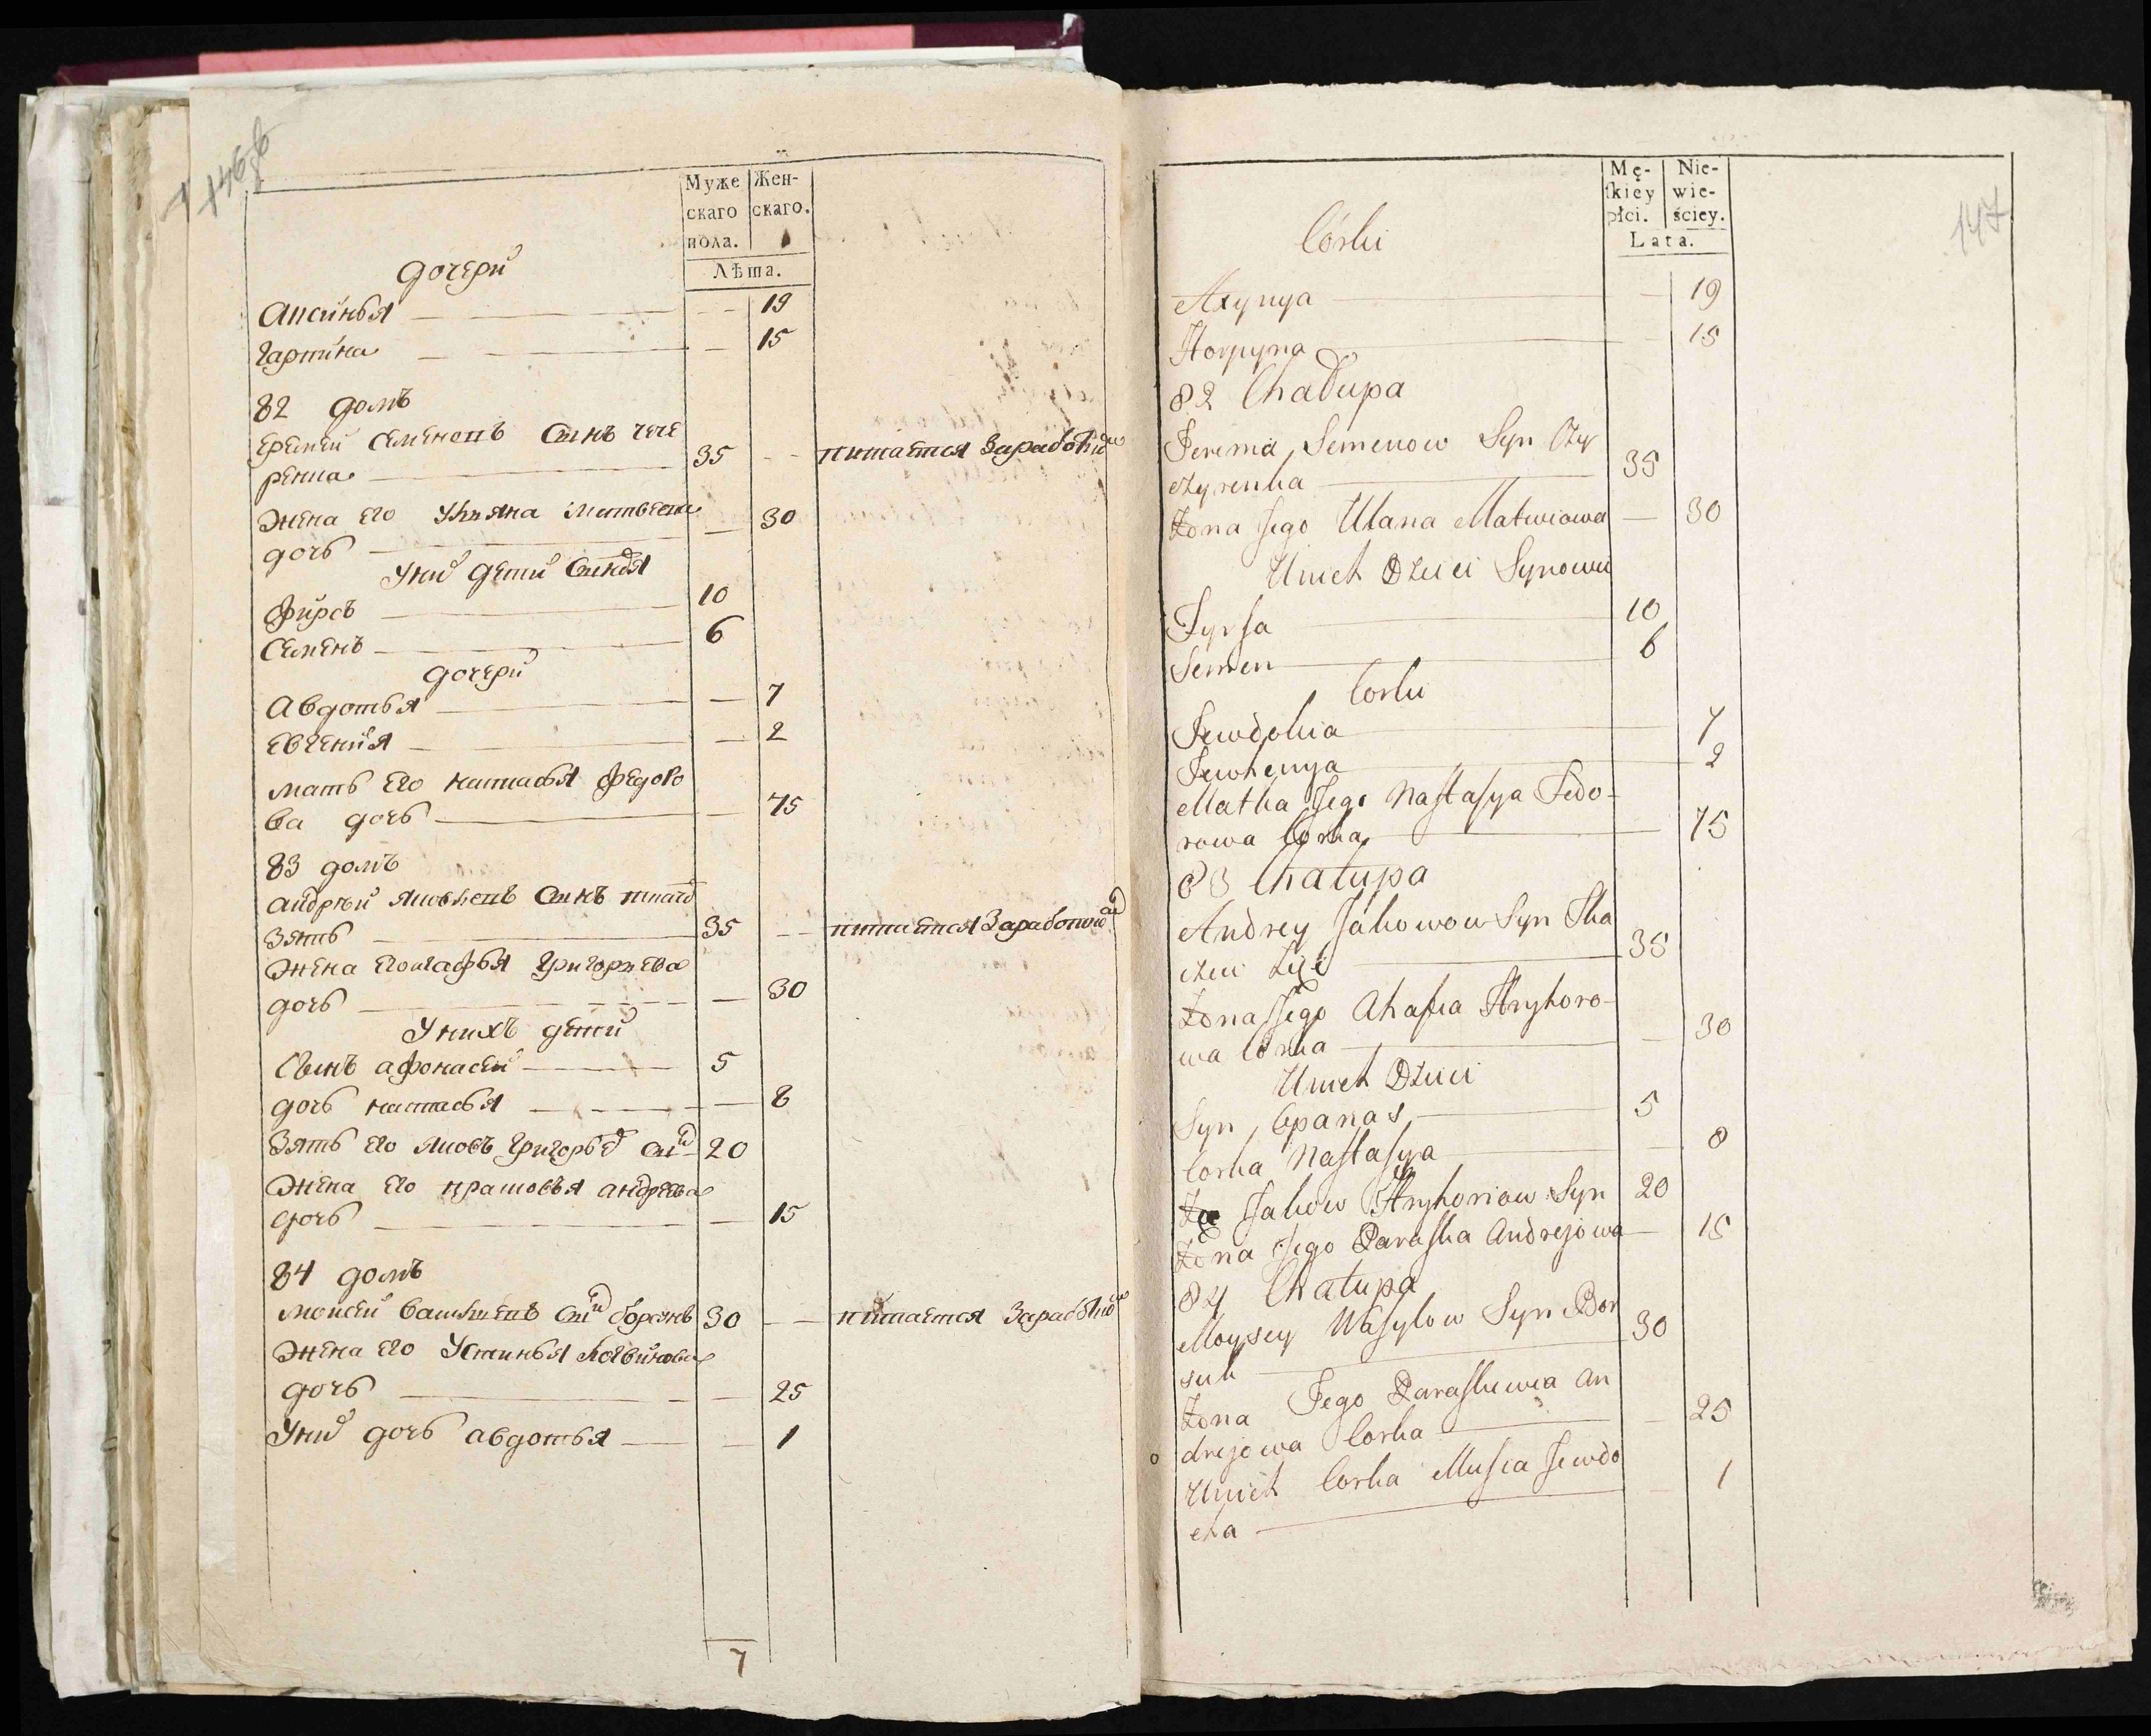 146 об
Муже Жен-
скаго скаго.
пола.
Лѣта.
дочери
Аксинья — 19
Гарпина — 15
82 домъ
Еремей Семеновъ Сынъ чече
ренка — 35 — питается Заработк
жена Его Ульяна Матвеева
дочь — 30
У них дети Сыновья
Фирсъ — 10
Семенъ — 6
дочери
Авдотья — 7
Евгения — 2
мать Его настасья Федоро
ва дочь — 75
83 домъ
андрей Яковлевъ Сынъ ткачо
Зять — 35 — питается Заработко
жена Его агафья Григорьева
дочь — 30
У нихъ дети
Сынъ афонасей — 5
дочь настасья — 8
Зять Его Яковъ Григорье Сы 20
жена Его прасковья андреева
дочь — 15
84 домъ
моисей Васильевъ Сы борсукъ 30 — питается Заработк
жена Его Устинья
дочь — 25
У них дочь авдотья — 1
7
147
Mę- Nie-
skiey wie-
płci. ściey.
Lata.
Córki
Axynya — 19
Horpyna — 15
82 Chałupa
Jerema Semenow Syn Czy
czyrenka — 35
Żona Jego Ulana Matwiowa — 30
Unich Dzieci Synowie
Fyrsa — 10
Semen — 6
Corki
Jewdokia — 7
Jewhenya — 2
Matka Jego Nastasya Fedo-
rowa Corka — 75
83 Chałupa
Andrey Jakowow Syn Tka
czow Zięć — 35
Żona Jego Ahafia Hryhoro-
wa Córka — 30
Unich Dzieci
Syn Opanas — 5
Corka Nastasya — 8
Zię Jakow Hryhoriow Syn 20
Żona Jego Paraska Andrejowa — 15
84 Chałupa
Moysey Wasylow Syn Bor
suk — 30
Żona Jego Paraskiewia An
drejowa Corka — 25
Unich Corka Jewdo
cha — 1